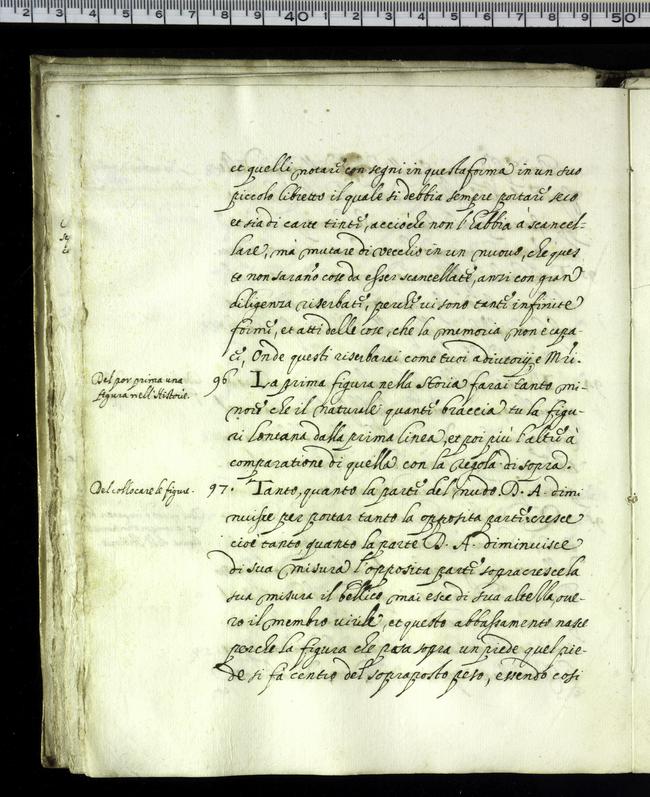 et quelli notare con segni in questa forma in un suo
piccolo libretto il quale si debbia sempre portare seco
et sia di carte tinte, accioche non l'habbia à scancel-
lare, mà mutare di vecchio in un nuovo, che ques
te non saranno cose da esser scancellate, anzi con gran
diligenza riserbate, perche vi sono tante infinite
forme, et atti delle cose, che la memoria non è capa-
ce, Onde questi riserbarai come tuoi adiutorij, e Mri.
Del por prima una
figura nell'Historie.
96 La prima figura nella storia farai tanto mi-
nore che il naturale quante braccia tu la figu-
ri lontana dalla prima linea, et poi più l'altre à
comparatione di quella con la regola di sopra.
Del collocare le figure.
97. Tanto, quanto la parte del nudo D. A. dimi
nuisce per portar tanto la opposita parte cresce
cioè tanto quanto la parte D. A. diminuisce
di sua misura l'opposita parte sopracresce la
sua misura il bellico mai esce di sua altezza, ove-
ro il membro virile, et questo abbassamento nasce
perche la figura che posa sopra un piede quel pie-
de si fà centro del sopraposto peso, essendo cosi